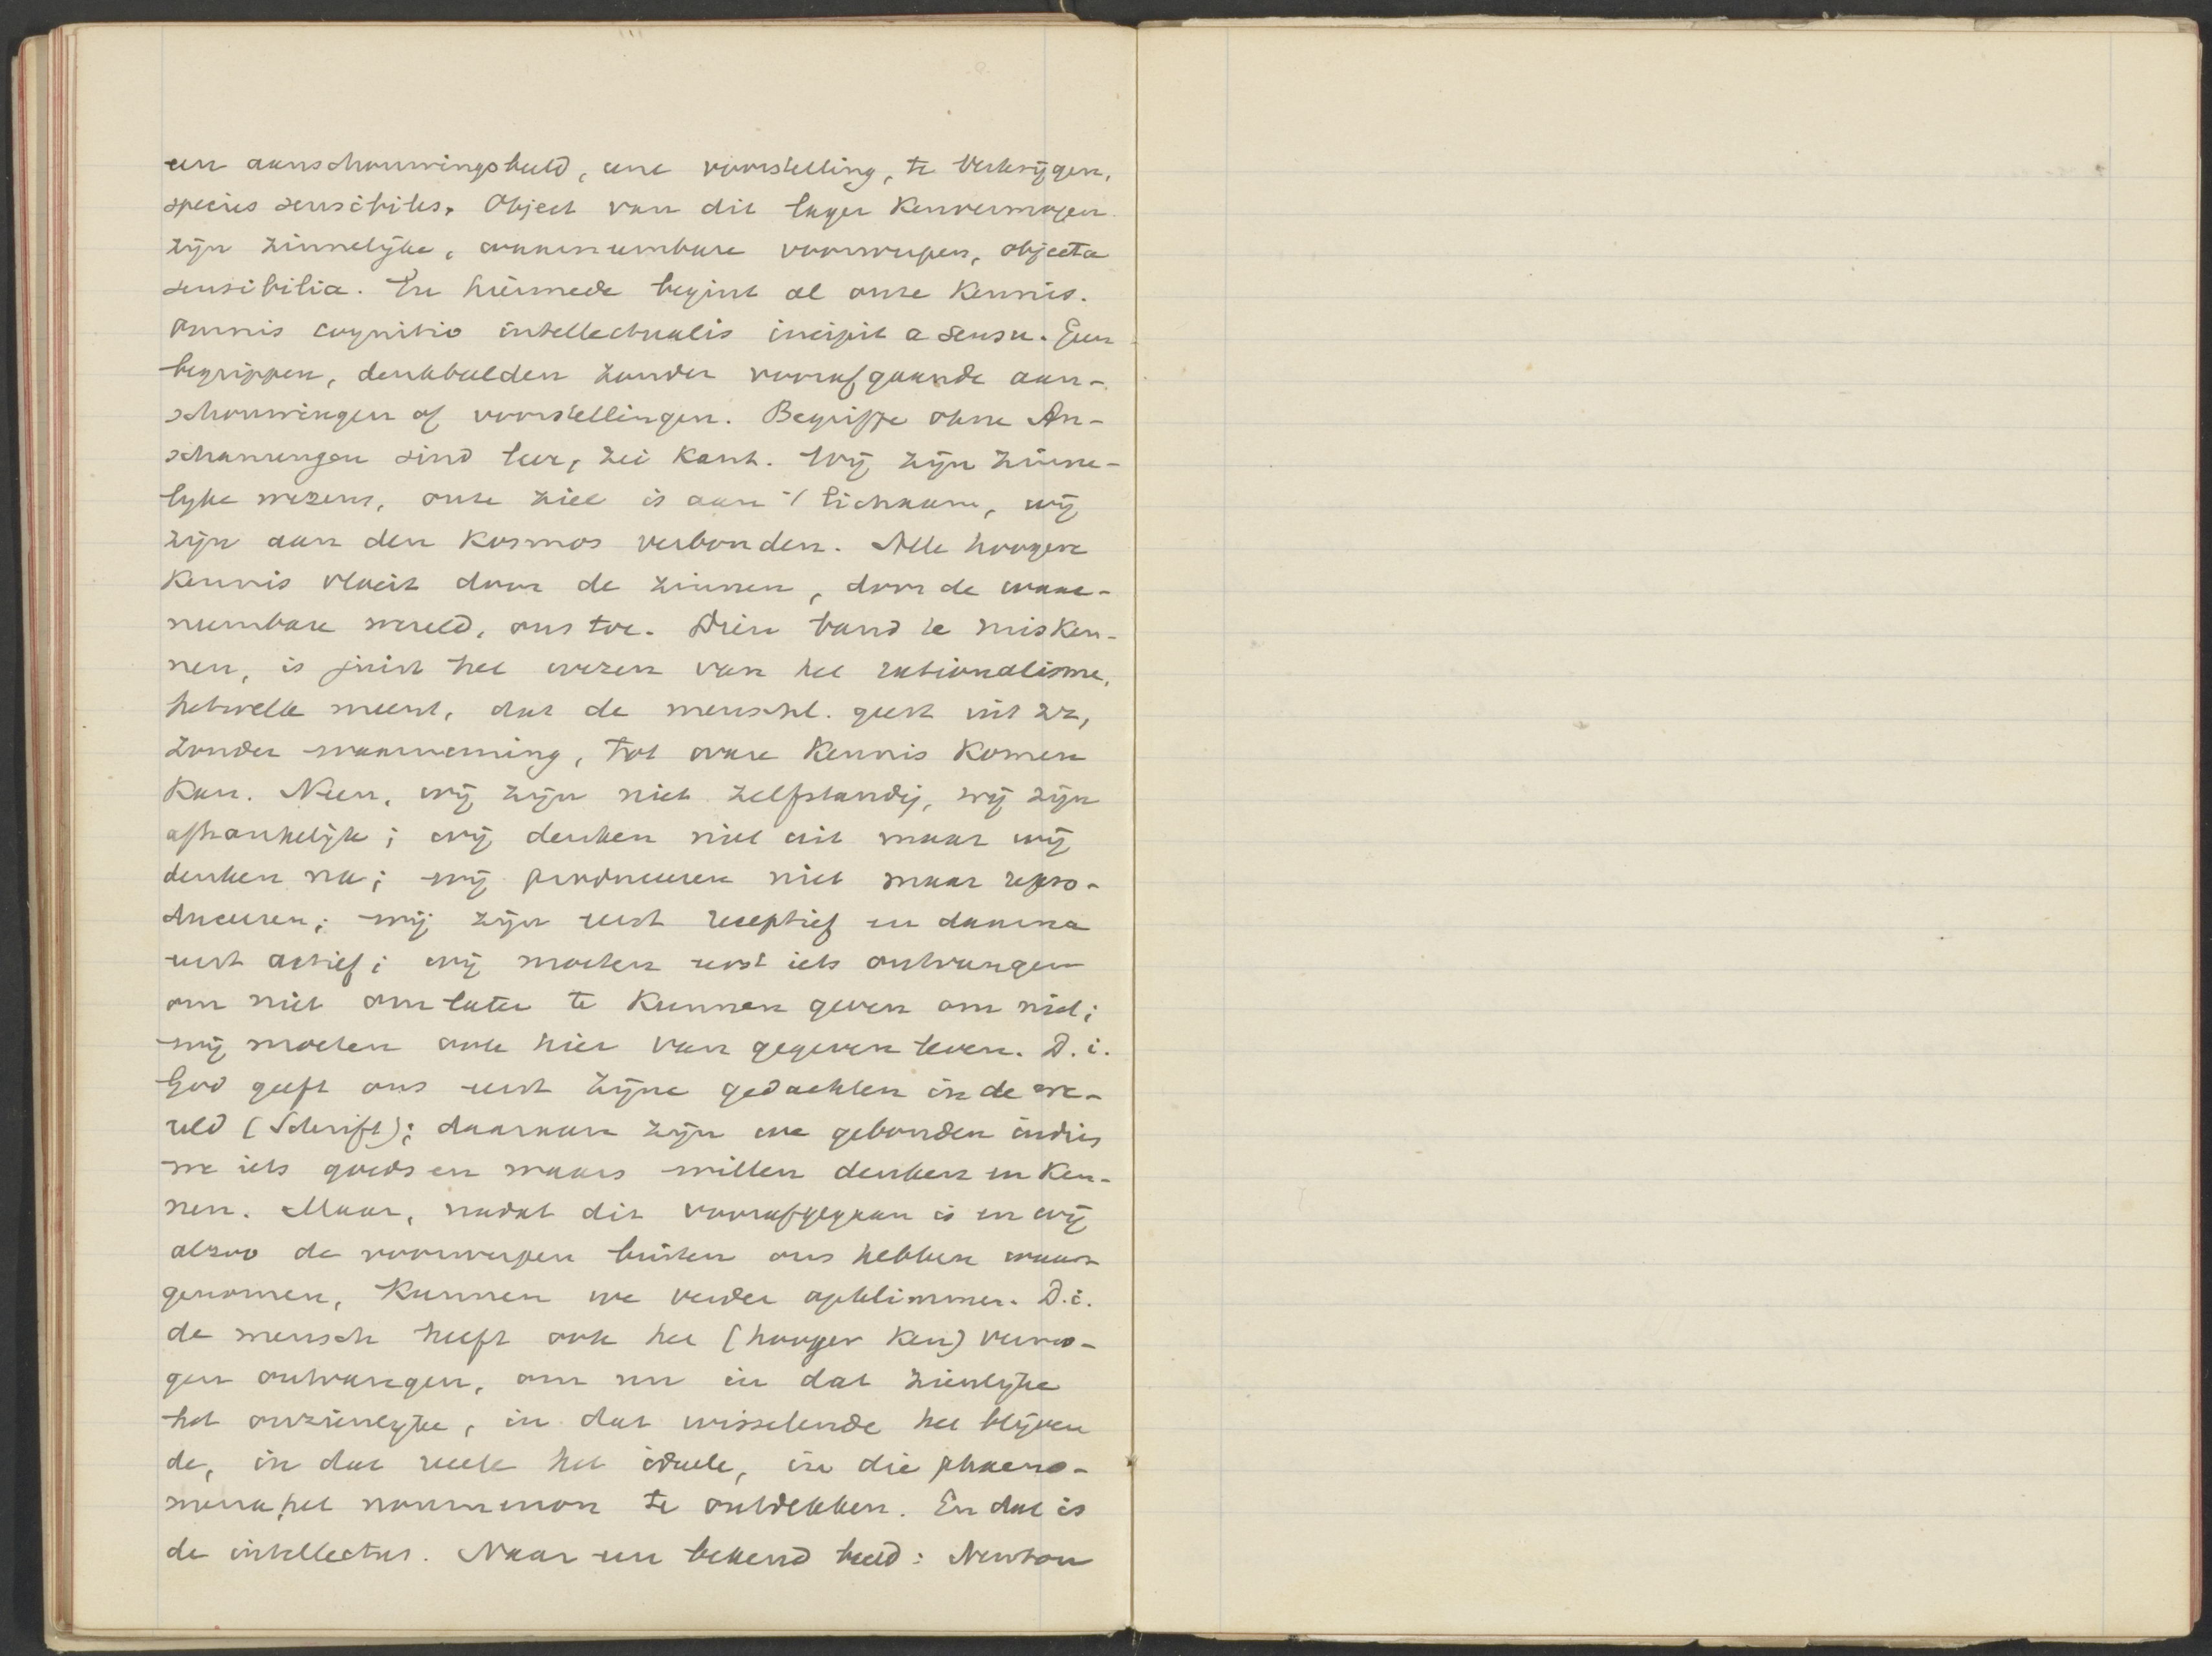 een aanschouwingsbeeld, eene voorstelling, te verkrijgen,
species sensibiles. Object van dit lager Kenvermogen
zijn zinnelijke, waarneembare voorwerpen, objecta
sensibilia. En hiermede begint al onze Kennis.
Omnis cognitio intellectualis incipit a sensu. Geen
begrippen, denkbeelden zonder voorafgaande aan-
schouwingen of voorstellingen. Begriffe ohne An-
schauungen sind leer, zei Kant. Wij zijn zinne-
lijke wezens, onze ziel is aan 't lichaam, wij
zijn aan den Kosmos verbonden. Alle hoogere
Kennis vloeit door de zinnen, door de waar-
neembare wereld, ons toe. Dien band te misken-
nen, is juist het wezen van het rationalisme,
hetwelk meent, dat de menschl. geest uit zz,
zonder waarneming, tot ware Kennis Komen
Kan. Neen, wij zijn niet zelfstandig, wij zijn
afhankelijk; wij denken niet uit maar wij
denken na; wij produceeren niet maar repro-
duceeren; wij zijn eerst receptief en daarna
eerst actief; wij moeten eerst iets ontvangen
om niet om later te Kunnen geven om niet;
wij moeten ook hier van gegeven leven. D.i.
God geeft ons eerst zijne gedachten in de we-
reld (Schrift); daaraan zijn we gebonden indien
we iets goeds en waars willen denken en Ken-
nen. Maar, nadat dit voorafgegaan is en wij
alzoo de voorwerpen buiten ons hebben waar
genomen, Kunnen we verder opklimmen. D.i.
de mensch heeft ook het (hooger Ken) vermo-
gen ontvangen, om nu in dat zienlijke
het onzienlijke, in dat wisselende het blijven
de, in dat reeele het ideele, in die phaeno-
mena, het noumenon te ontdekken. En dat is
de intellectus. Naar een bekend beeld: Newton